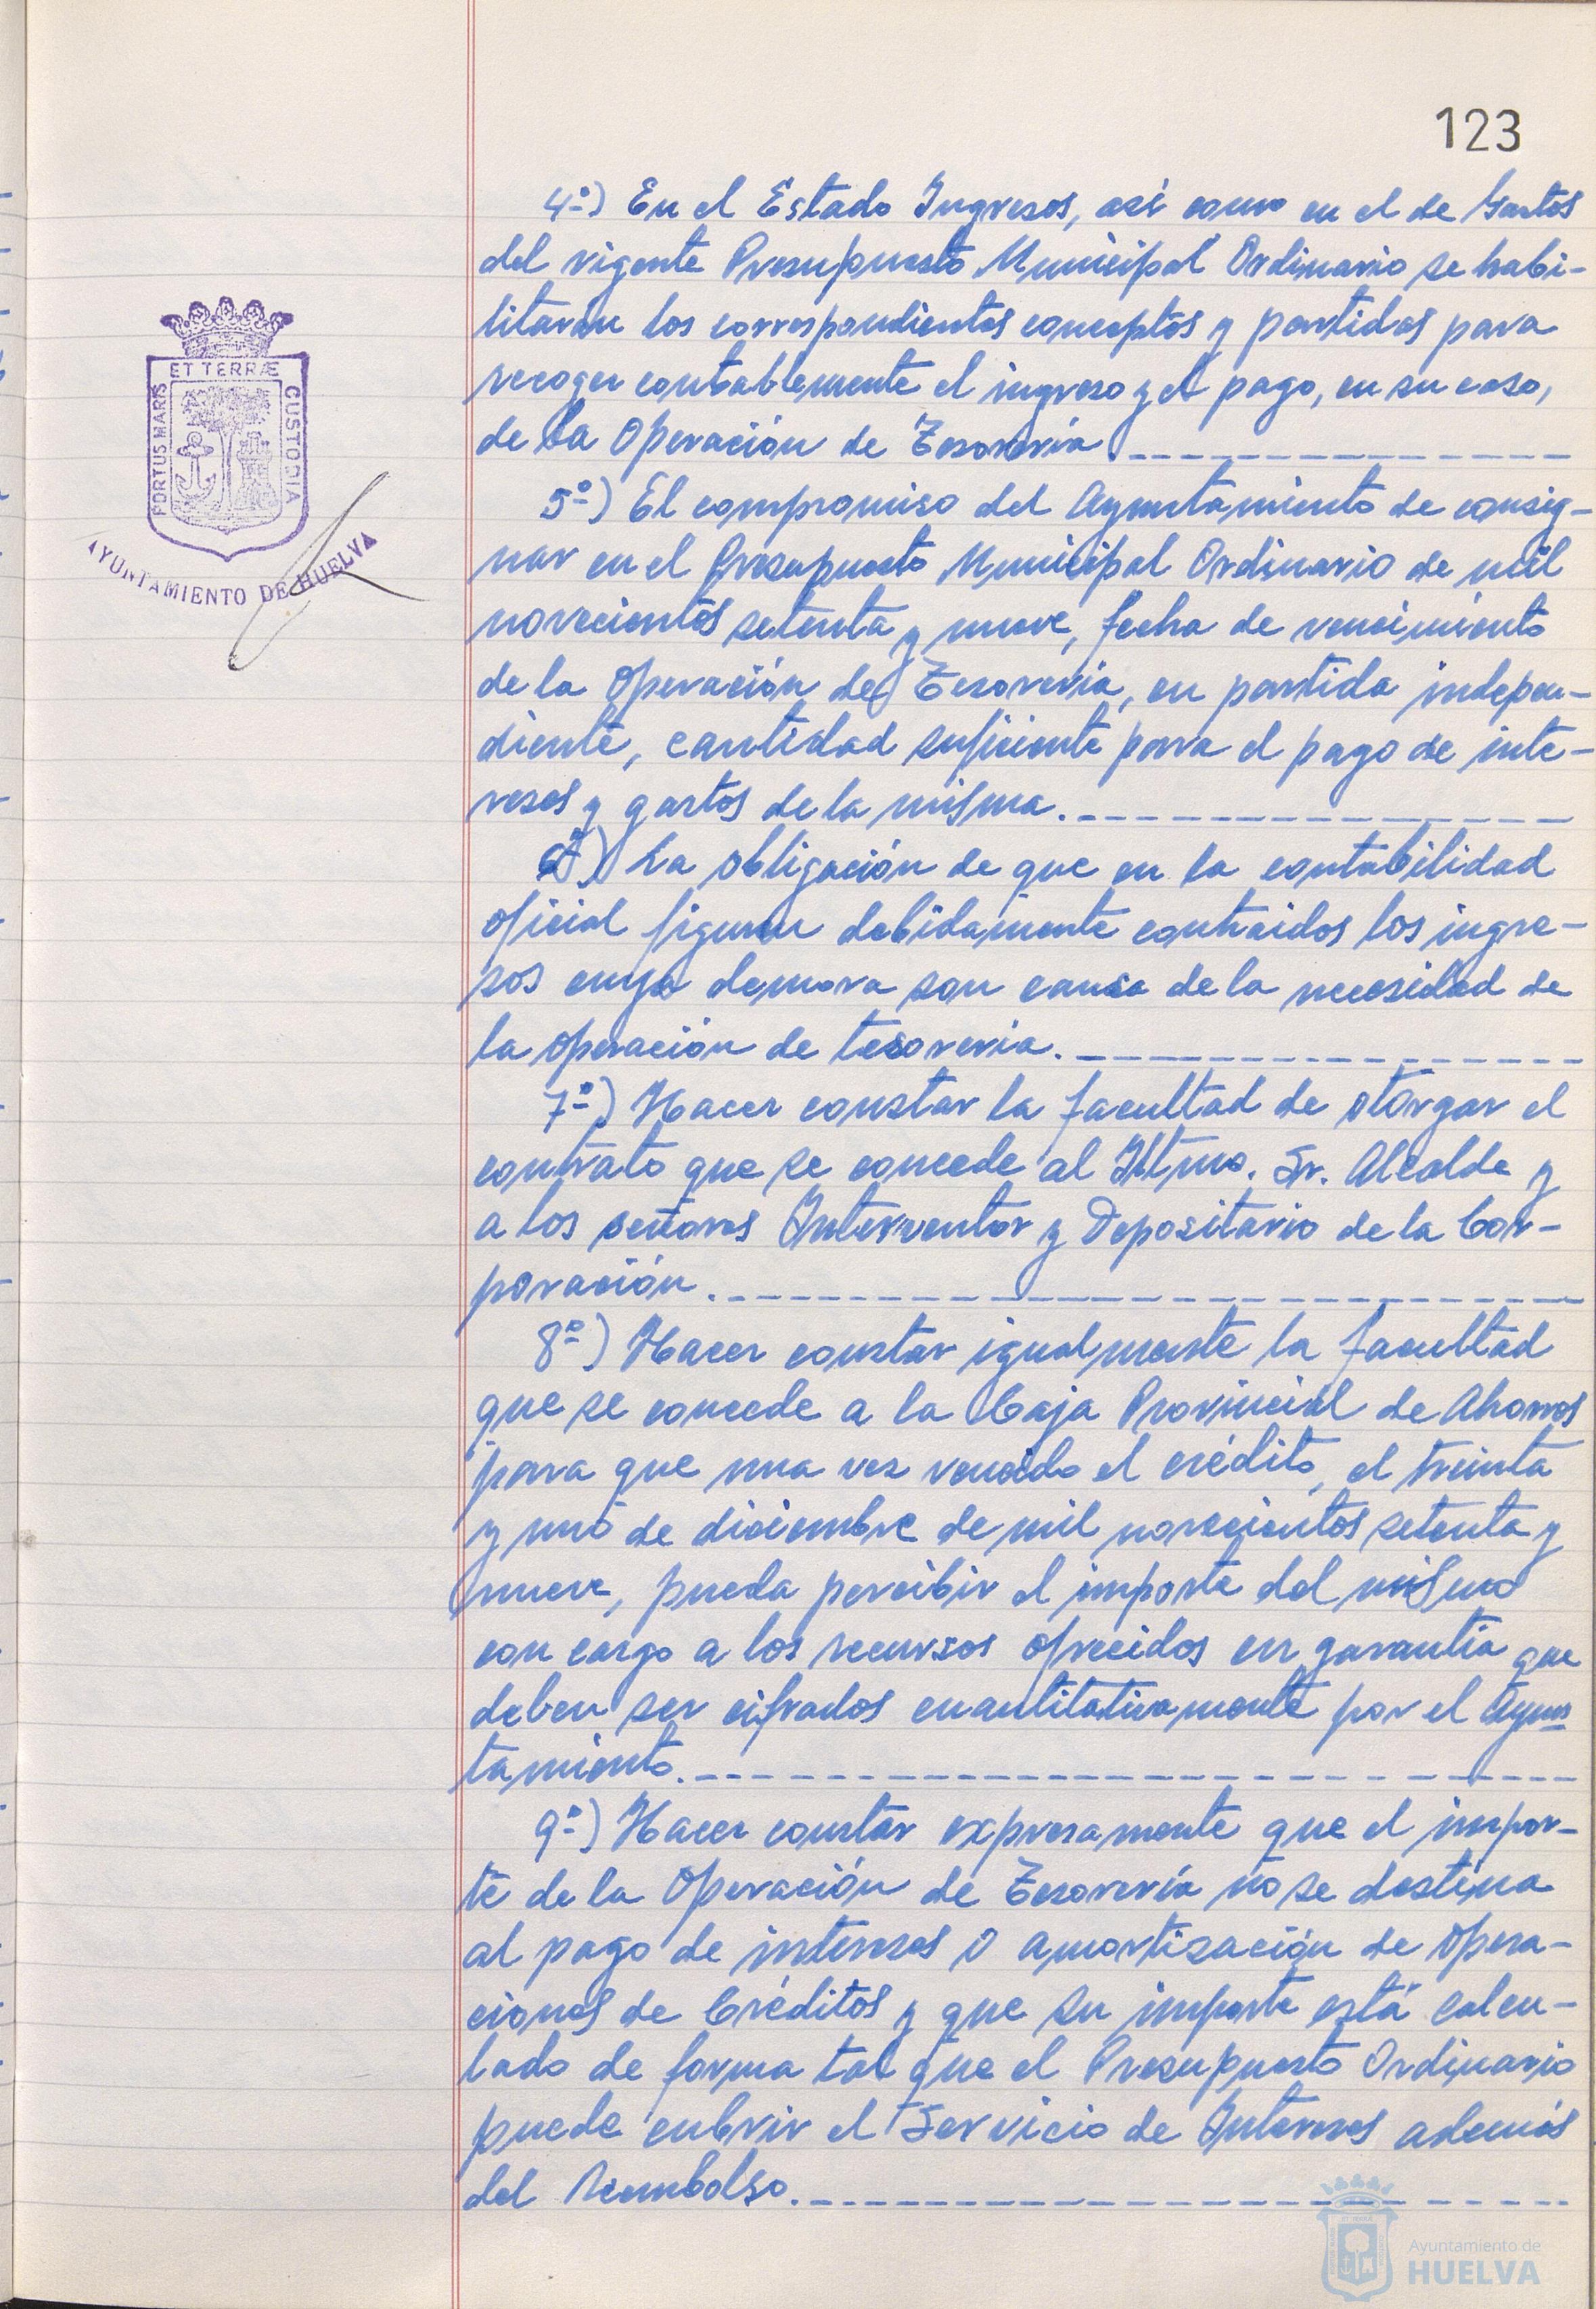 123
4º) En el Estado Ingresos, así como en el de Gastos
del vigente Presupuesto Municipal Ordinario se habi-
litarán los correspondientes conceptos y partidas para
recoger contablemente el ingreso y el pago, en su caso,
de la Operación de Tesorería.
5º) El compromiso del Ayuntamiento de consig-
nar en el Presupuesto Municipal Ordinario de mil
novecientos setenta y nueve, fecha de vencimiento
de la Operación de Tesorería, en partida indepen-
diente, cantidad suficiente para el pago de inte-
reses y gastos de la misma.
6º) La obligación de que en la contabilidad
oficial figuren debidamente contraidos los ingre-
sos cuya demora son causa de la necesidad de
la operación de tesorería.
7º) Hacer constar la facultad de otorgar el
contrato que se concede al Iltmo. Sr. Alcalde y
a los señores Interventor y Depositario de la Cor-
poración.
8º) Hacer constar igualmente la facultad
que se concede a la Caja Provincial de Ahorros
para que una vez vencido el crédito, el treinta
y uno de diciembre de mil novecientos setenta y
nueve, pueda percibir el importe del mismo
con cargo a los recursos ofrecidos en garantía que
deben ser cifrados cuantitativamente por el Ayun
tamiento.
9º) Hacer constar expresamente que el impor-
te de la Operación de Tesorería no se destina
al pago de intereses o amortización de opera-
ciones de Créditos y que su importe está calcu-
lado de forma tal que el Presupuesto Ordinario
puede cubrir el Servicio de Intereses además
del Reembolso.
ET TERRÆ
PORTUS MARIS
CUSTODIA
AYUNTAMIENTO DE HUELVA
Ayuntamiento de
HUELVA